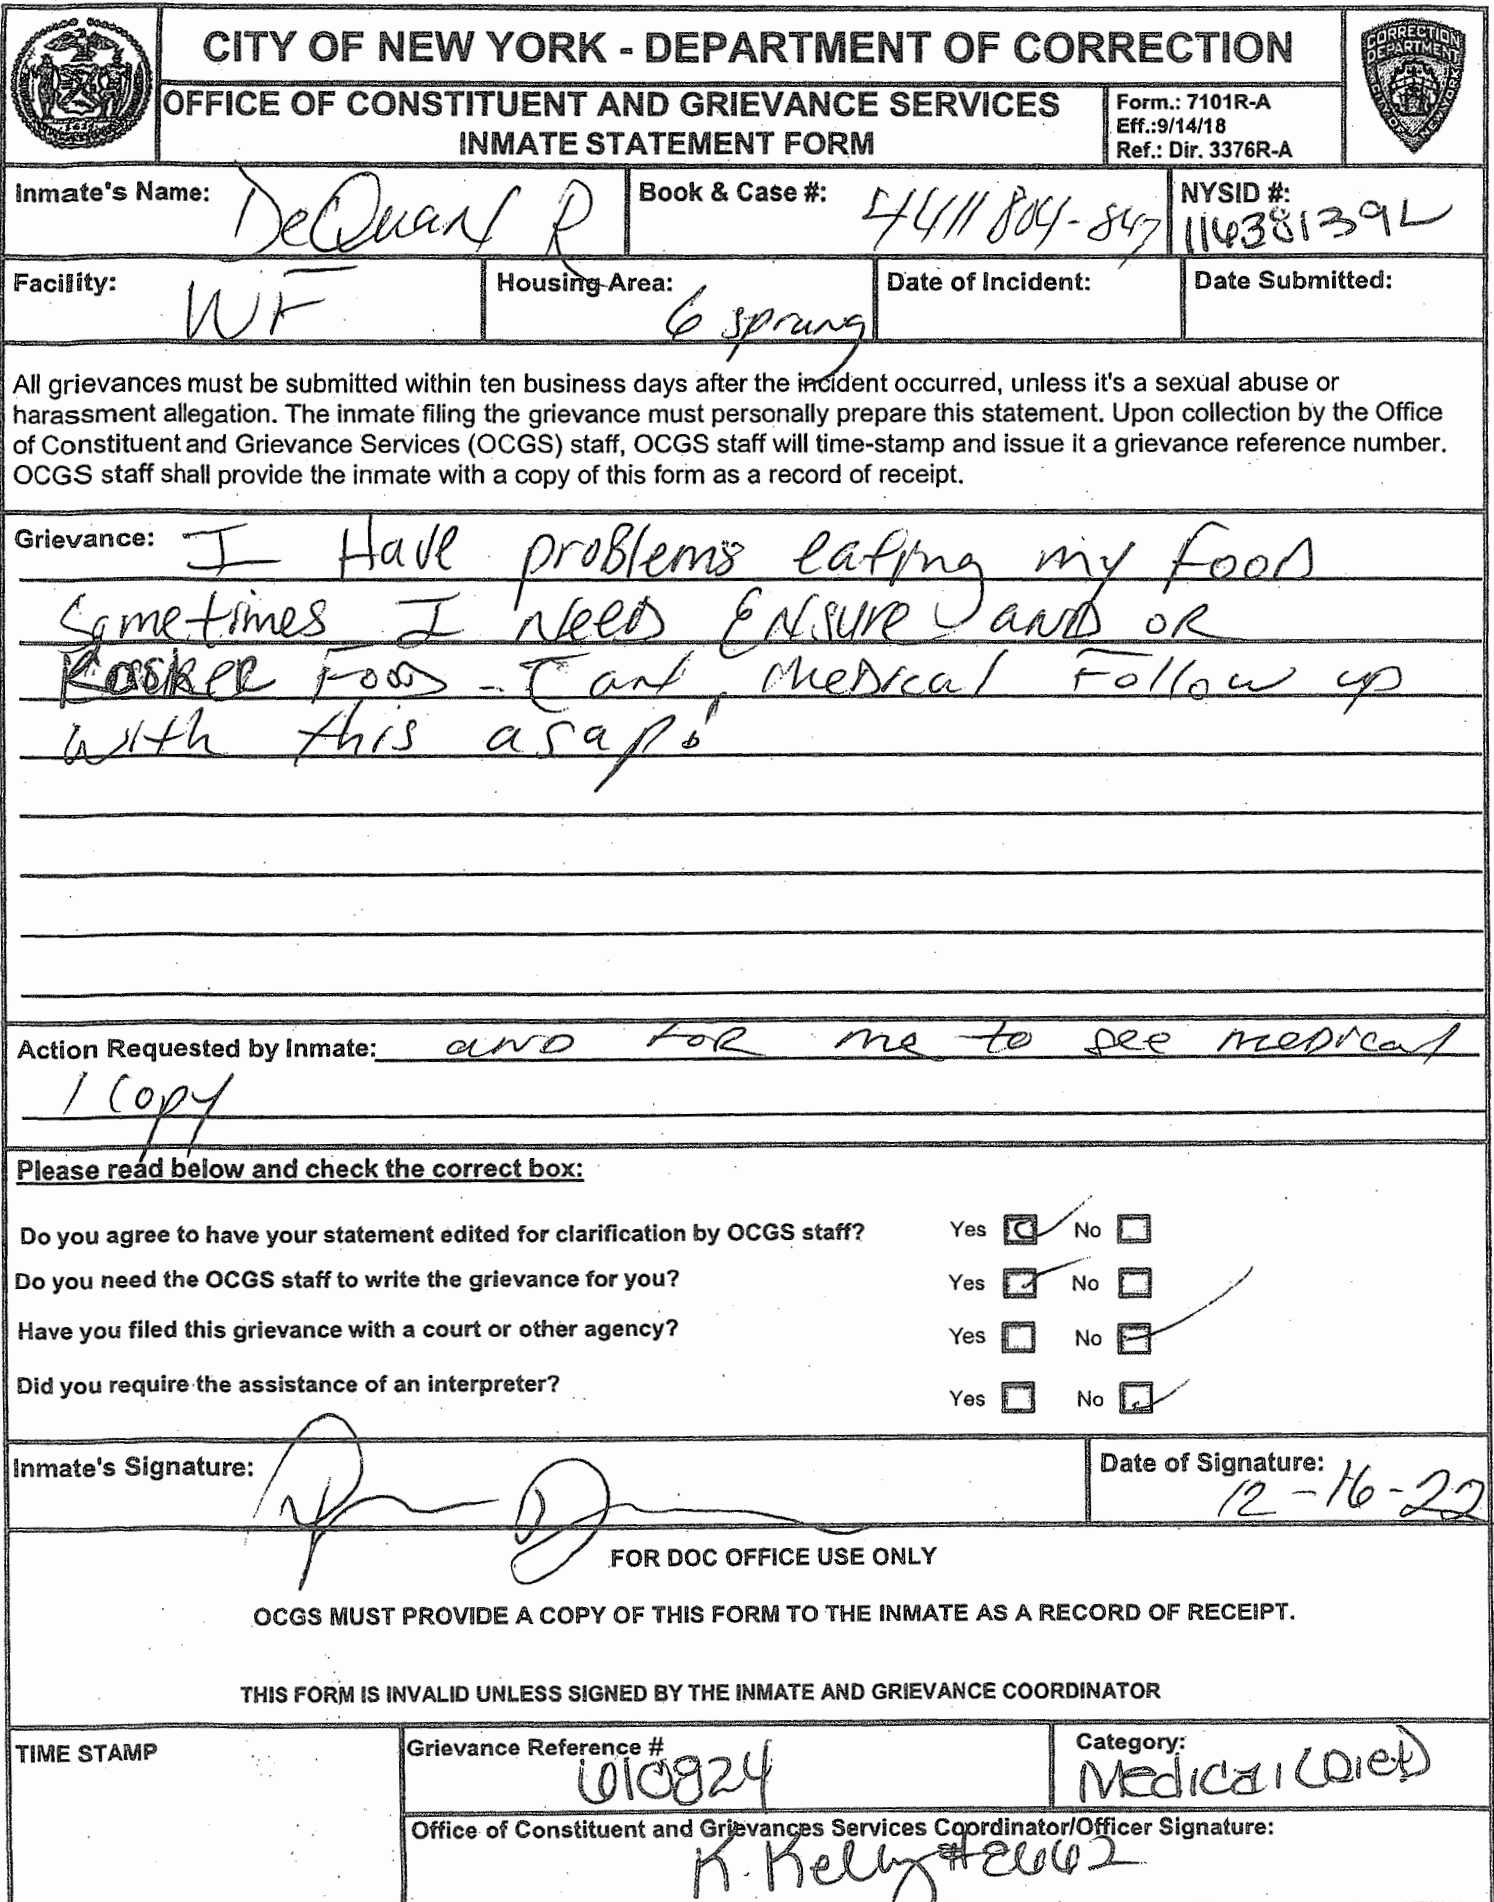 CITY OF NEW YORK - DEPARTMENT OF CORRECTION
CORRECTION DEPARTMENT
CITY OF NEW YORK
OFFICE OF CONSTITUENT AND GRIEVANCE SERVICES
INMATE STATEMENT FORM
Form.: 7101R-A
Eff.:9/14/18
Ref.: Dir. 3376R-A
Inmate's Name: DeQuan R
Book & Case #: 4411804-847
NYSID #: 11638139L
Facility: WF
Housing Area: 6 sprung
Date of Incident:
Date Submitted:
All grievances must be submitted within ten business days after the incident occurred, unless it's a sexual abuse or
harassment allegation. The inmate filing the grievance must personally prepare this statement. Upon collection by the Office
of Constituent and Grievance Services (OCGS) staff, OCGS staff will time-stamp and issue it a grievance reference number.
OCGS staff shall provide the inmate with a copy of this form as a record of receipt.
Grievance: I Have problems eating my Food
Sometimes I Need ENsure and OR
Food - Medical Follow up
with this asap!
Action Requested by Inmate: and FOR me to see medical
1 Copy
Please read below and check the correct box:
Do you agree to have your statement edited for clarification by OCGS staff? Yes No
Do you need the OCGS staff to write the grievance for you? Yes No
Have you filed this grievance with a court or other agency? Yes No
Did you require the assistance of an interpreter? Yes No
Inmate's Signature:
Date of Signature: 12-16-22
FOR DOC OFFICE USE ONLY
OCGS MUST PROVIDE A COPY OF THIS FORM TO THE INMATE AS A RECORD OF RECEIPT.
THIS FORM IS INVALID UNLESS SIGNED BY THE INMATE AND GRIEVANCE COORDINATOR
TIME STAMP
Grievance Reference # 610824
Category: Medical (Diet)
Office of Constituent and Grievances Services Coordinator/Officer Signature:
K. Kelly #8662